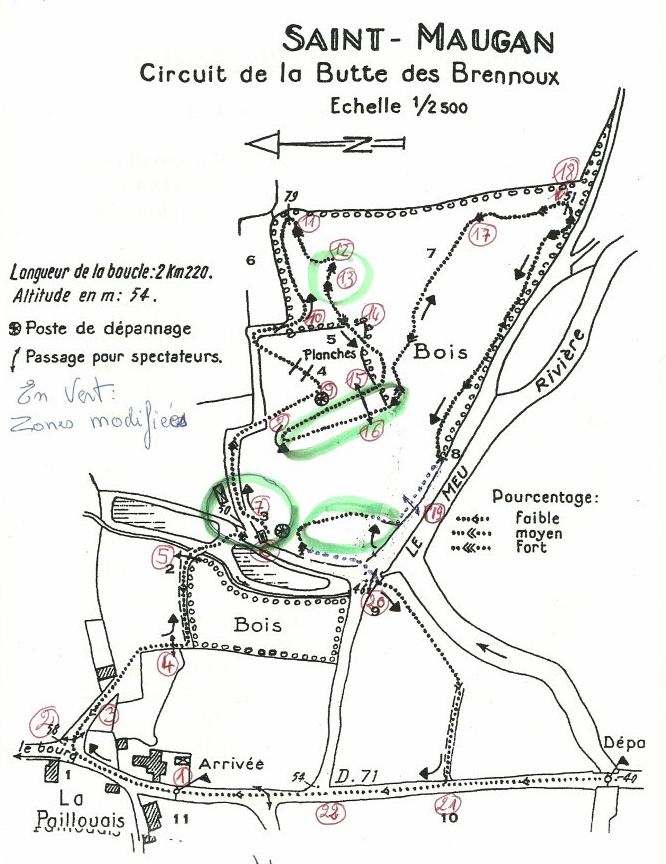 SAINT-MAUGAN
Circuit de la Butte des Brennoux
Echelle 1/2500
N
Longueur de la boucle: 2 Km 220.
Altitude en m: 54.
Poste de dépannage
Passage pour spectateurs.
En Vert:
Zones modifiées
79
11
18
51
17
12
13
6
7
10
14
5
Planches
4
Bois
15
9
8
16
RIVIÈRE
8
LE MEU
19
Pourcentage:
faible
moyen
fort
50
7
3
6
5
2
46
20
9
Bois
4
2
3
58
le bourg
1
La Paillouais
Arrivée
1
11
54
D.71
22
21
10
Dépa
40